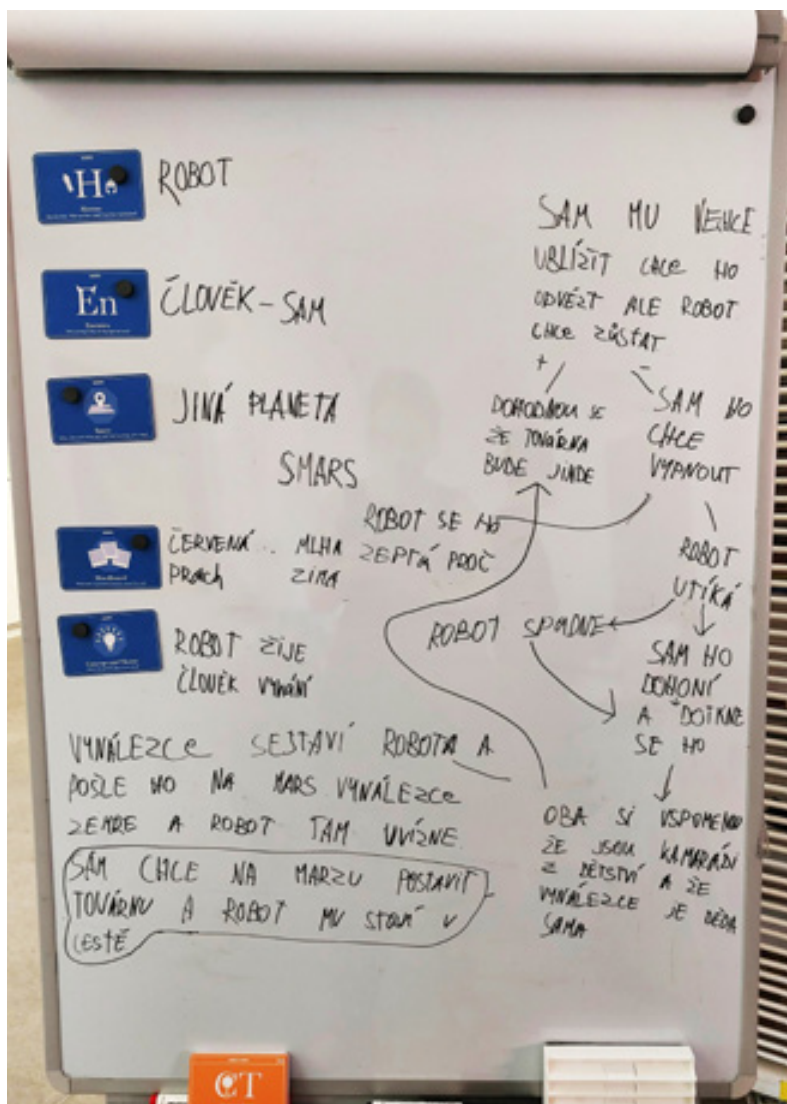 H
ROBOT
En
ČLOVĚK – SAM
JINÁ PLANETA
SMARS
ČERVENÁ .. MLHA
PRACH ZIMA
ROBOT ŽIJE
ČLOVĚK VYHÁNÍ
VYNÁLEZCE SESTAVÍ ROBOTA A
POŠLE HO NA MARS VYNÁLEZCE
ZEMŘE A ROBOT TAM UVÍZNE
SAM CHCE NA MARZU POSTAVIT
TOVÁRNU A ROBOT MU STOJÍ V
CESTĚ
SAM MU NECHCE
UBLÍŽIT CHCE HO
ODVÉZT ALE ROBOT
CHCE ZŮSTAT
+ -
DOHODNOU SE
ŽE TOVÁRNA
BUDE JINDE
SAM HO
CHCE
VYPNOUT
ROBOT SE HO
ZEPTÁ PROČ
ROBOT
UTÍKÁ
ROBOT SPADNE
SAM HO
DOHONÍ
A DOTKNE
SE HO
OBA SI VSPOMENOU
ŽE JSOU KAMARÁDI
Z DĚTSTVÍ A ŽE
VYNÁLEZCE JE DĚDA
SAMA
CT